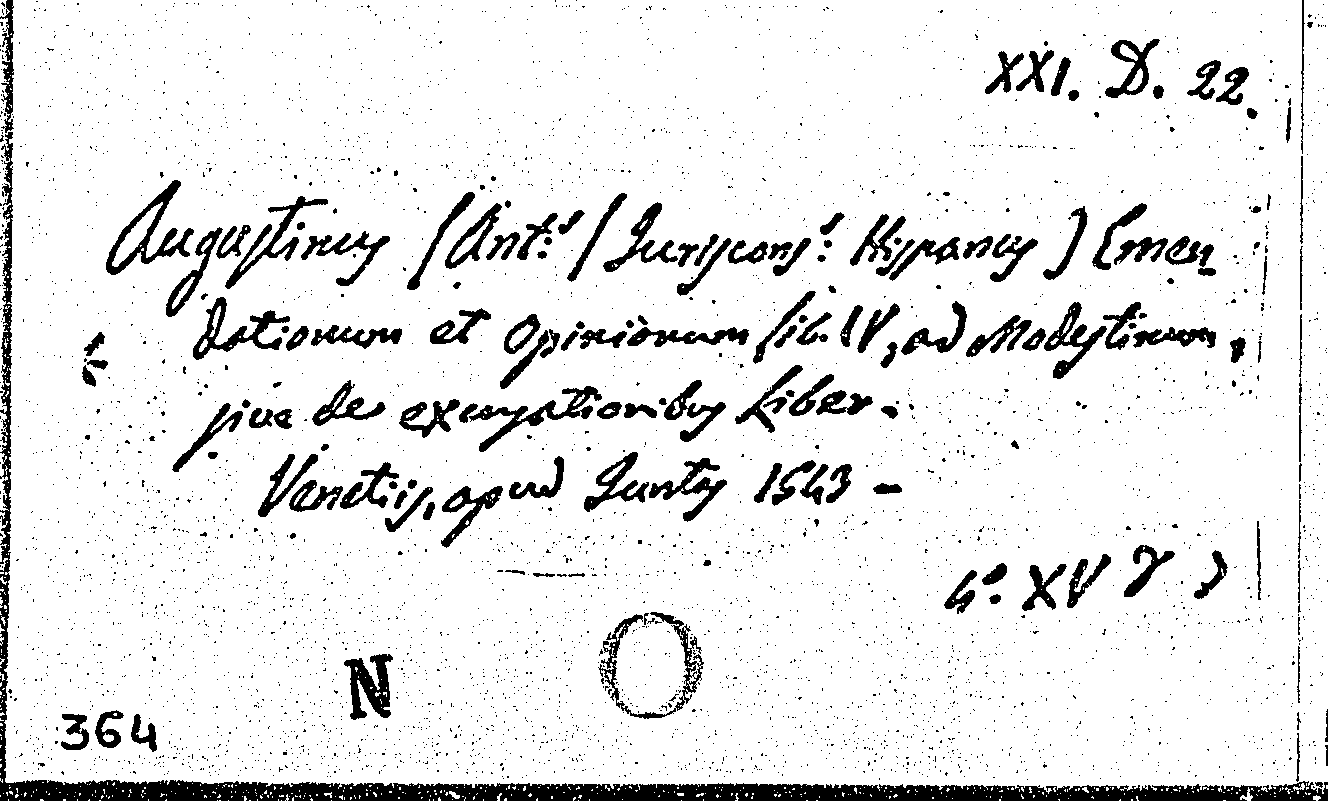 XXI. D. 22.
Augustinus (Ant:s / Juriscons:s Hispanus) Emen
dationum et Opinionum lib. IV, ad Modestinum,
sive de excusationibus Liber.
Venetiis, apud Juntas 1543 -
4º. XV
N O
364